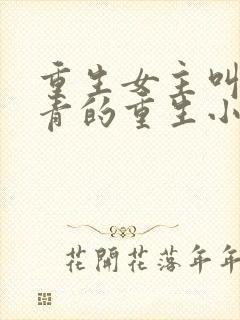 重生女主叫
青的重生小
花開花落年年